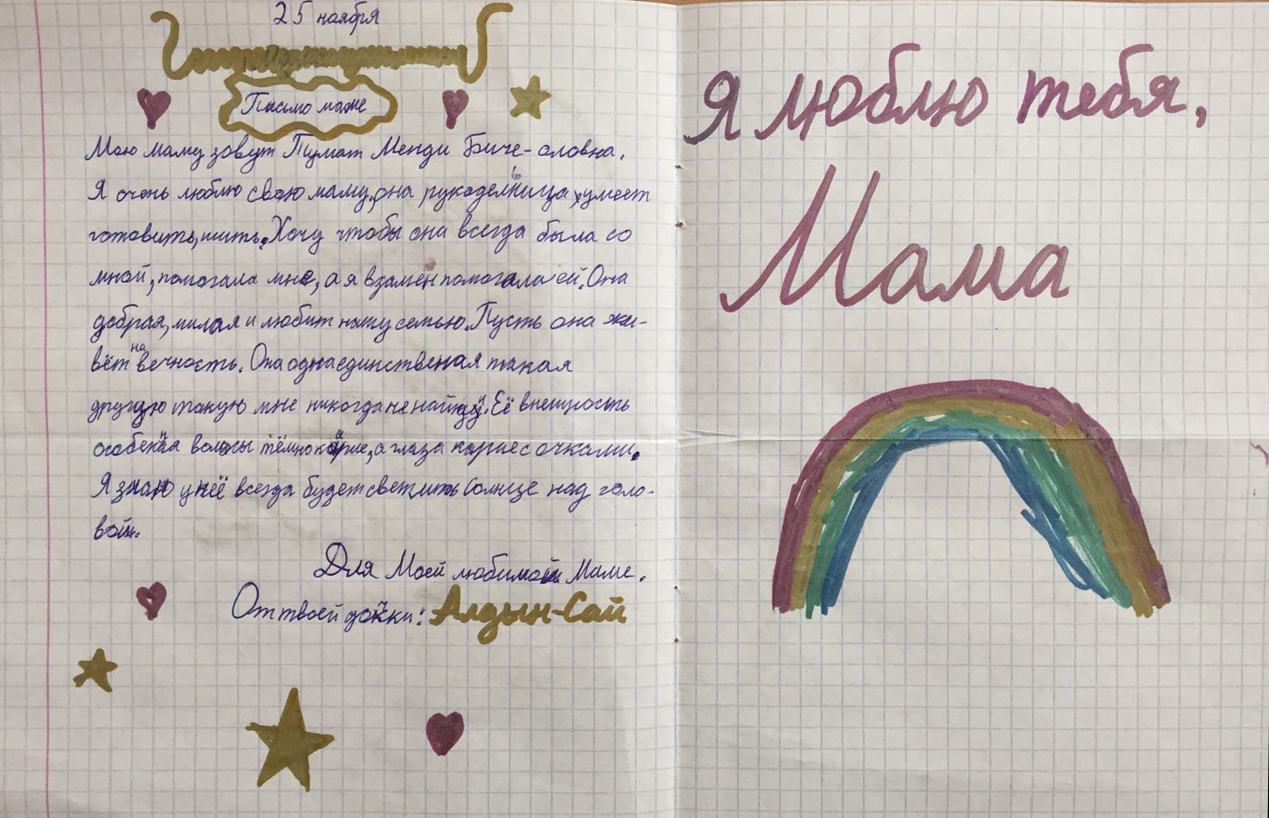 25 ноября
Письмо маме
Мою маму зовут Тумат Менди Биче-оловна.
Я очень люблю свою маму, она рукодельница, умеет
готовить, шить. Хочу чтобы она всегда была со
мной, помогала мне, а я взамен помогала ей. Она
добрая, милая и любит нашу семью. Пусть она жи-
вёт на вечность. Она одна единственая такая
другую такую мне никогда не найду. Её внешность
особенна волосы тёмно карие, а глаза карие с очками.
Я знаю у неё всегда будет светить солнце над голо-
вой.
Для Моей любимой Маме.
От твоей дочки: Алдын-Сай
Я люблю тебя,
Мама